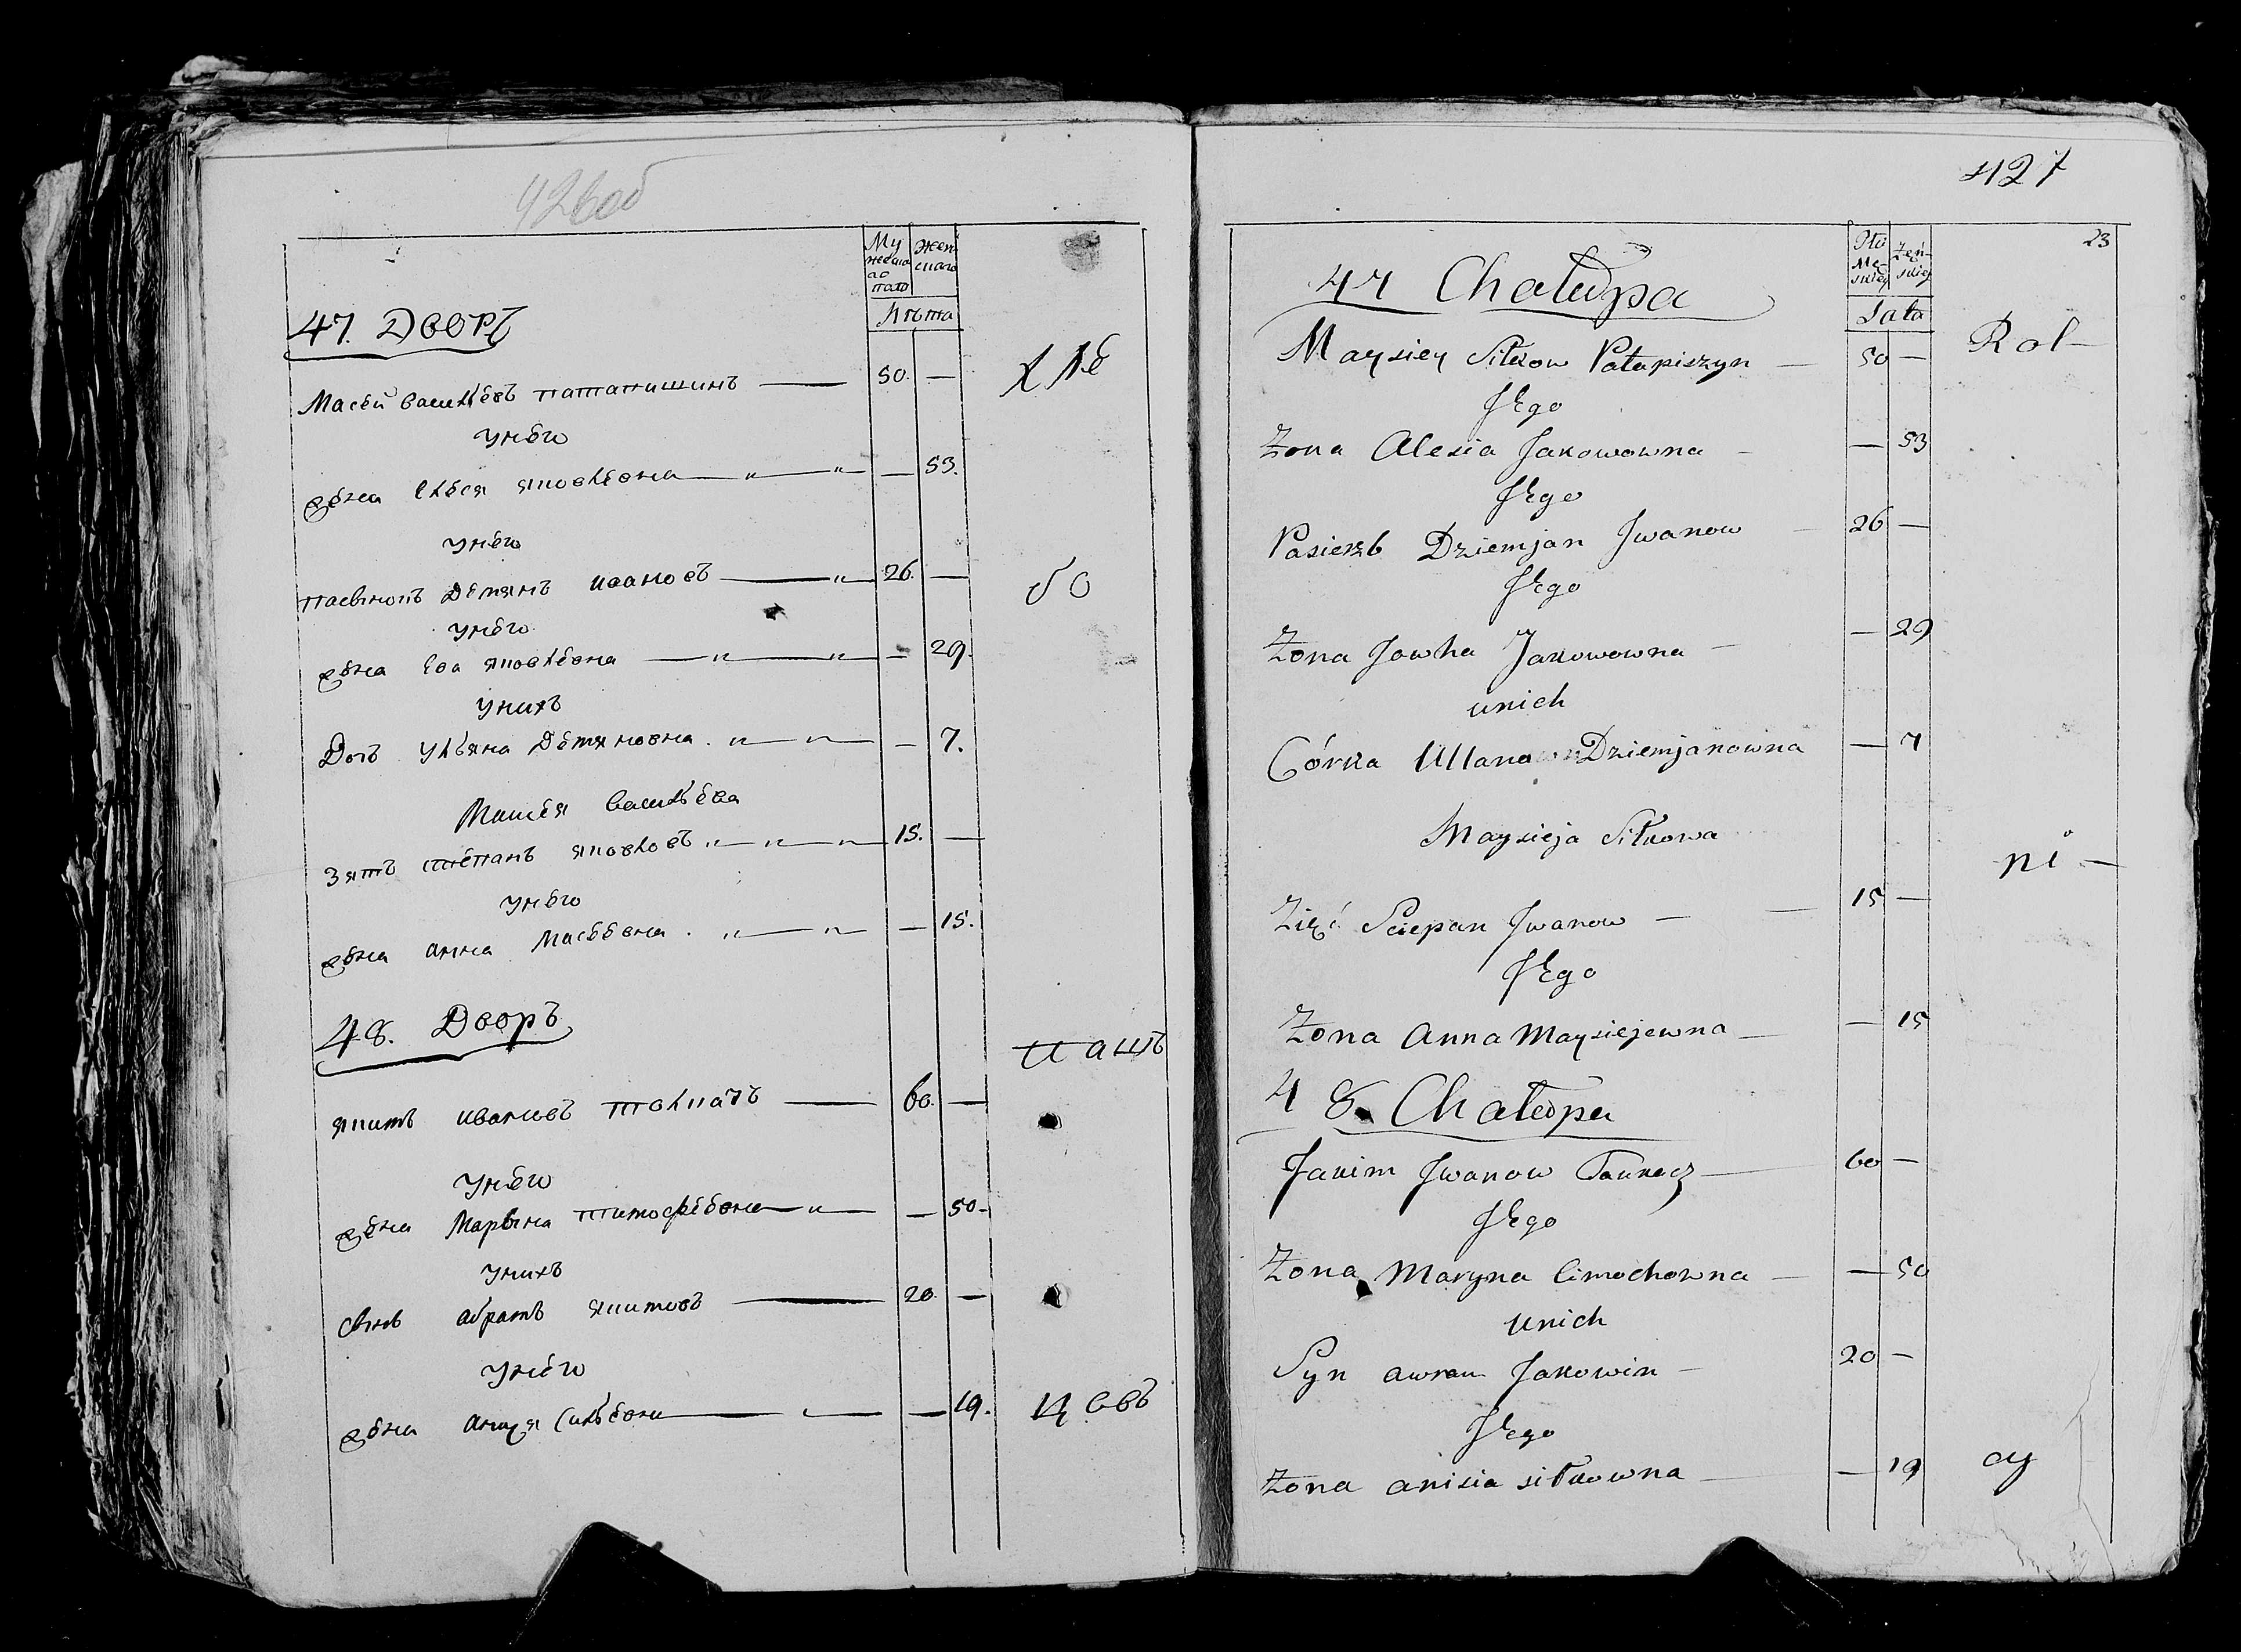 426об
Му
жеска
го
пола
Жен
скаго
Лѣта
47. Дворъ
Масей васильевъ патапишинъ — 50. —
унего
жена Евгея яковлевна — " — " — 53.
унего
пасынокъ Демянъ ивановъ — " — 26. —
унего
жена Ева яковлевна — " — " — 29.
унихъ
Дочь Ульяна Демяновна. " — " — — 7.
Масея васильева
Зять степанъ яковлевъ " — " — " — 15. —
унего
жена анна Масеевна. " — " — — 15.
48. Дворъ
якимъ ивановъ толкачъ — 60. —
унего
жена Марына тимофеевна — " — — 50-
унихъ
сынъ абрамъ якимовъ — 20. —
унего
жена — — 19.
хлѣ
бо
пашъ
цовъ
427
23
Płci
Mę-
skiej
Żeń-
skiej
Lata
47 Chałupa
Maysiey Siłkow Patapiszyn — 50 —
Jego
Żona Alesia Jakowowna — — 53
Jego
Pasierzb Dziemjan Jwanow — 26 —
Jego
Żona Jowha Jakowowna — — 29
unich
Córka Ullana Dziemjanowna — 7
Maysieja Siłkowa
Zięć Sciepan Jwanow — — 15 —
Jego
Żona Anna Maysiejewna — — 15
48. Chałupa
Jakim Jwanow Taukacz — 60 —
Jego
Żona Maryna Cimochowna — — 50
unich
Syn Awram Jakowin — 20 —
Jego
Żona anisia siłkowna — — 19
Rol —
ni —
cy